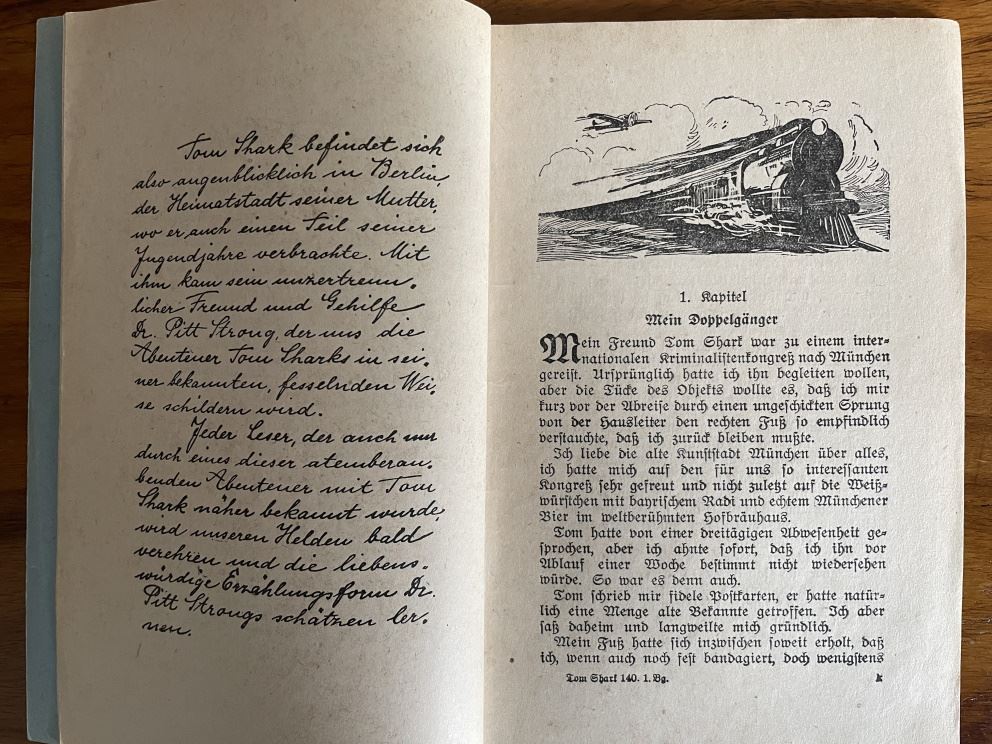 Tom Shark befindet sich
also augenblicklich in Berlin,
der Heimatstadt seiner Mutter,
wo er auch einen Teil seiner
Jugendjahre verbrachte. Mit
ihm kam sein unzertrenn-
licher Freund und Gehilfe
Dr. Pitt Strong, der uns die
Abenteuer Tom Sharks in sei-
ner bekannten, fesselnden Wei-
se schildern wird.
Jeder Leser, der auch nur
durch eines dieser atemberau-
benden Abenteuer mit Tom
Shark näher bekannt wurde,
wird unseren Helden bald
verehren und die liebens-
würdige Erzählungsform Dr.
Pitt Strongs schätzen ler-
nen.
1. Kapitel
Mein Doppelgänger
Mein Freund Tom Shark war zu einem inter-
nationalen Kriminalistenkongreß nach München
gereist. Ursprünglich hatte ich ihn begleiten wollen,
aber die Tücke des Objekts wollte es, daß ich mir
kurz vor der Abreise durch einen ungeschickten Sprung
von der Hausleiter den rechten Fuß so empfindlich
verstauchte, daß ich zurück bleiben mußte.
Ich liebe die alte Kunststadt München über alles,
ich hatte mich auf den für uns so interessanten
Kongreß sehr gefreut und nicht zuletzt auf die Weiß-
würstchen mit bayrischem Radi und echtem Münchener
Bier im weltberühmten Hofbräuhaus.
Tom hatte von einer dreitägigen Abwesenheit ge-
sprochen, aber ich ahnte sofort, daß ich ihn vor
Ablauf einer Woche bestimmt nicht wiedersehen
würde. So war es denn auch.
Tom schrieb mir fidele Postkarten, er hatte natür-
lich eine Menge alte Bekannte getroffen. Ich aber
saß daheim und langweilte mich gründlich.
Mein Fuß hatte sich inzwischen soweit erholt, daß
ich, wenn auch noch fest bandagiert, doch wenigstens
Tom Shark 140. 1. Bg.